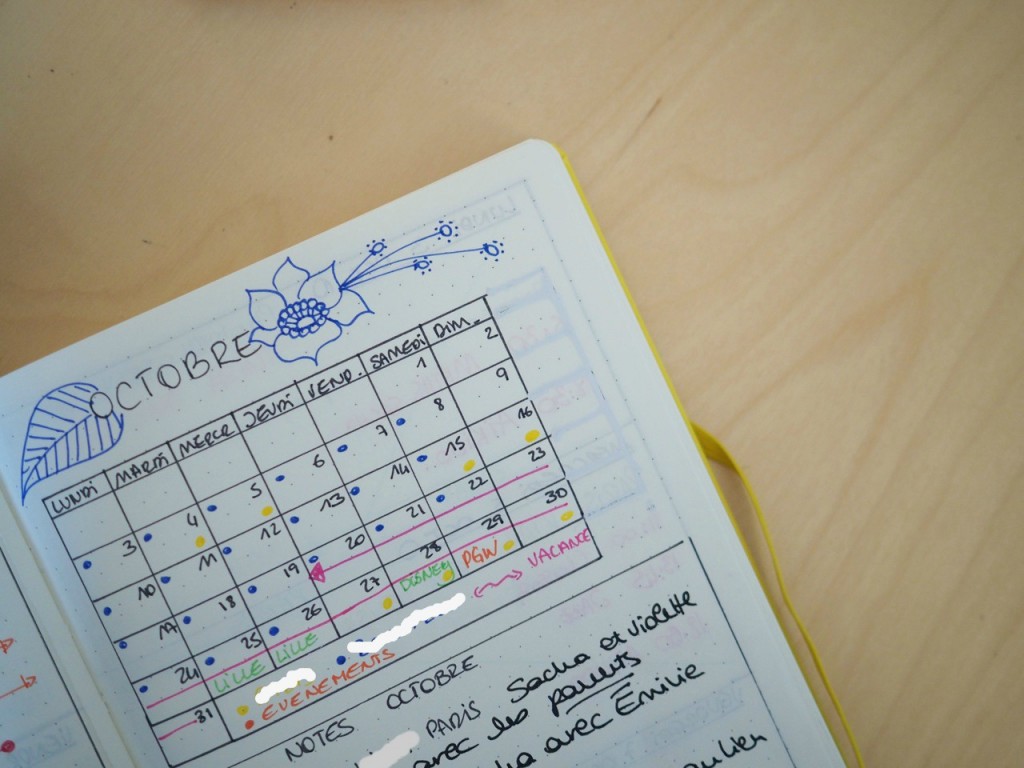 OCTOBRE
LUNDI MARDI MERCR JEUDI VEND. SAMEDI DIM.
1 2
3 4 5 6 7 8 9
10 11 12 13 14 15 16
17 18 19 20 21 22 23
24 25 26 27 28 29 30
LILLE LILLE DISNEY PGW
31
VACANCE
EVENEMENTS
NOTES OCTOBRE
PARIS Sacha et violette
avec les parents
avec Émilie